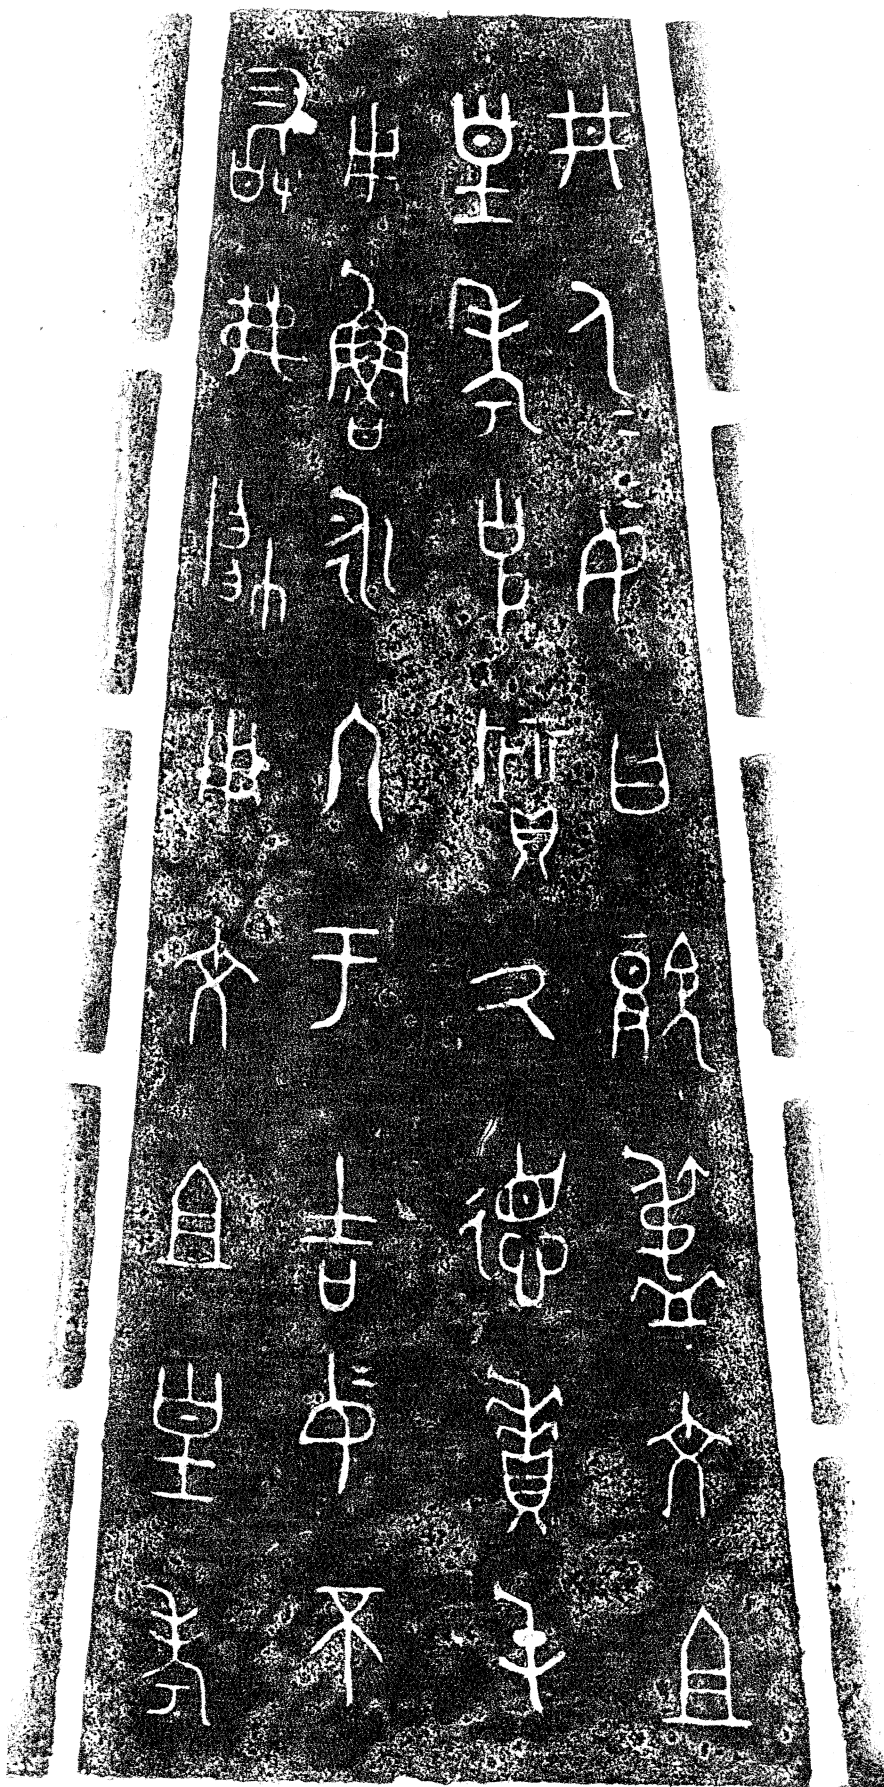 井人=妄曰覭盄文且
皇考克質氒德賁屯
用魯永冬于吉妄不
敢弗帥用文且皇考